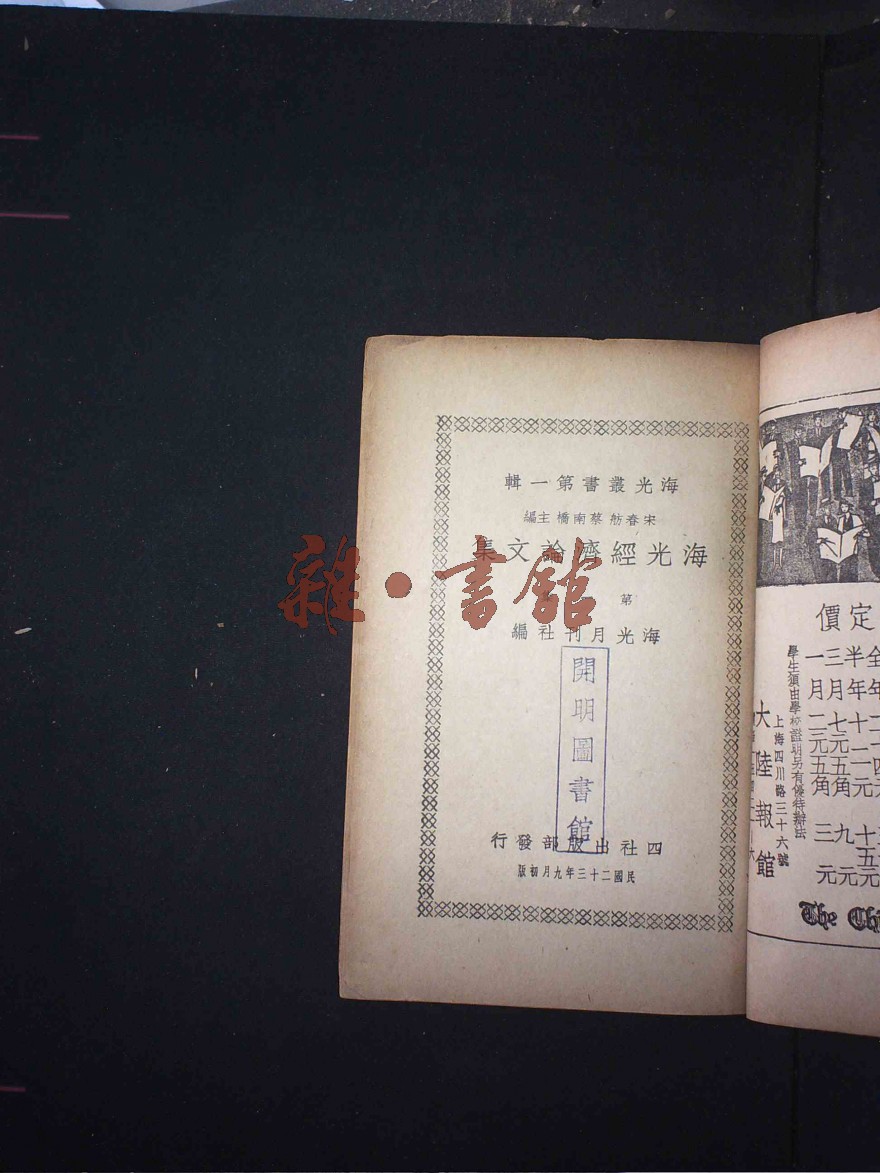 海光叢書第一輯
宋春舫蔡南橋主編
海光經濟論文集
第
海光月刊社編
開明圖書館
四社出版部發行
民國二十三年九月初版
雜·書館
定價
學生須由學校證明另有優待辦法
上海四川路三十六號
大陸報館
The Chi